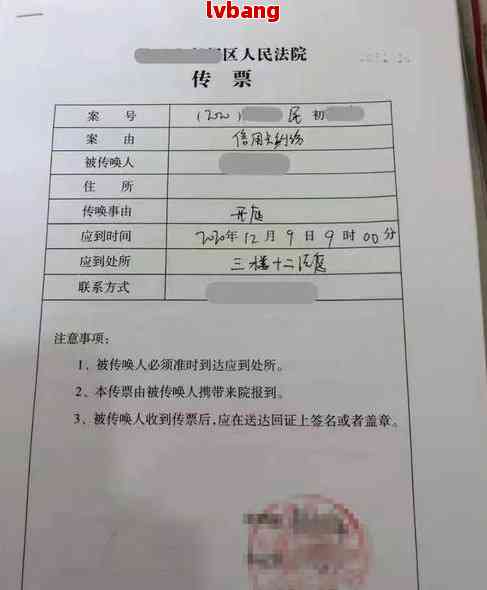 lvbang
区人民法院
传票
案号 (2020) 民 初
案由 信用卡纠纷
被传唤人
住所
传唤事由 开庭
应到时间 2020年12月9日9时00分
应到处所 三楼十二法庭
联系方式
注意事项:
1、被传唤人必须准时到达应到处所。
2、本传票由被传唤人携带来院报到。
3、被传唤人收到传票后,应在送达回证上签名或者盖章。